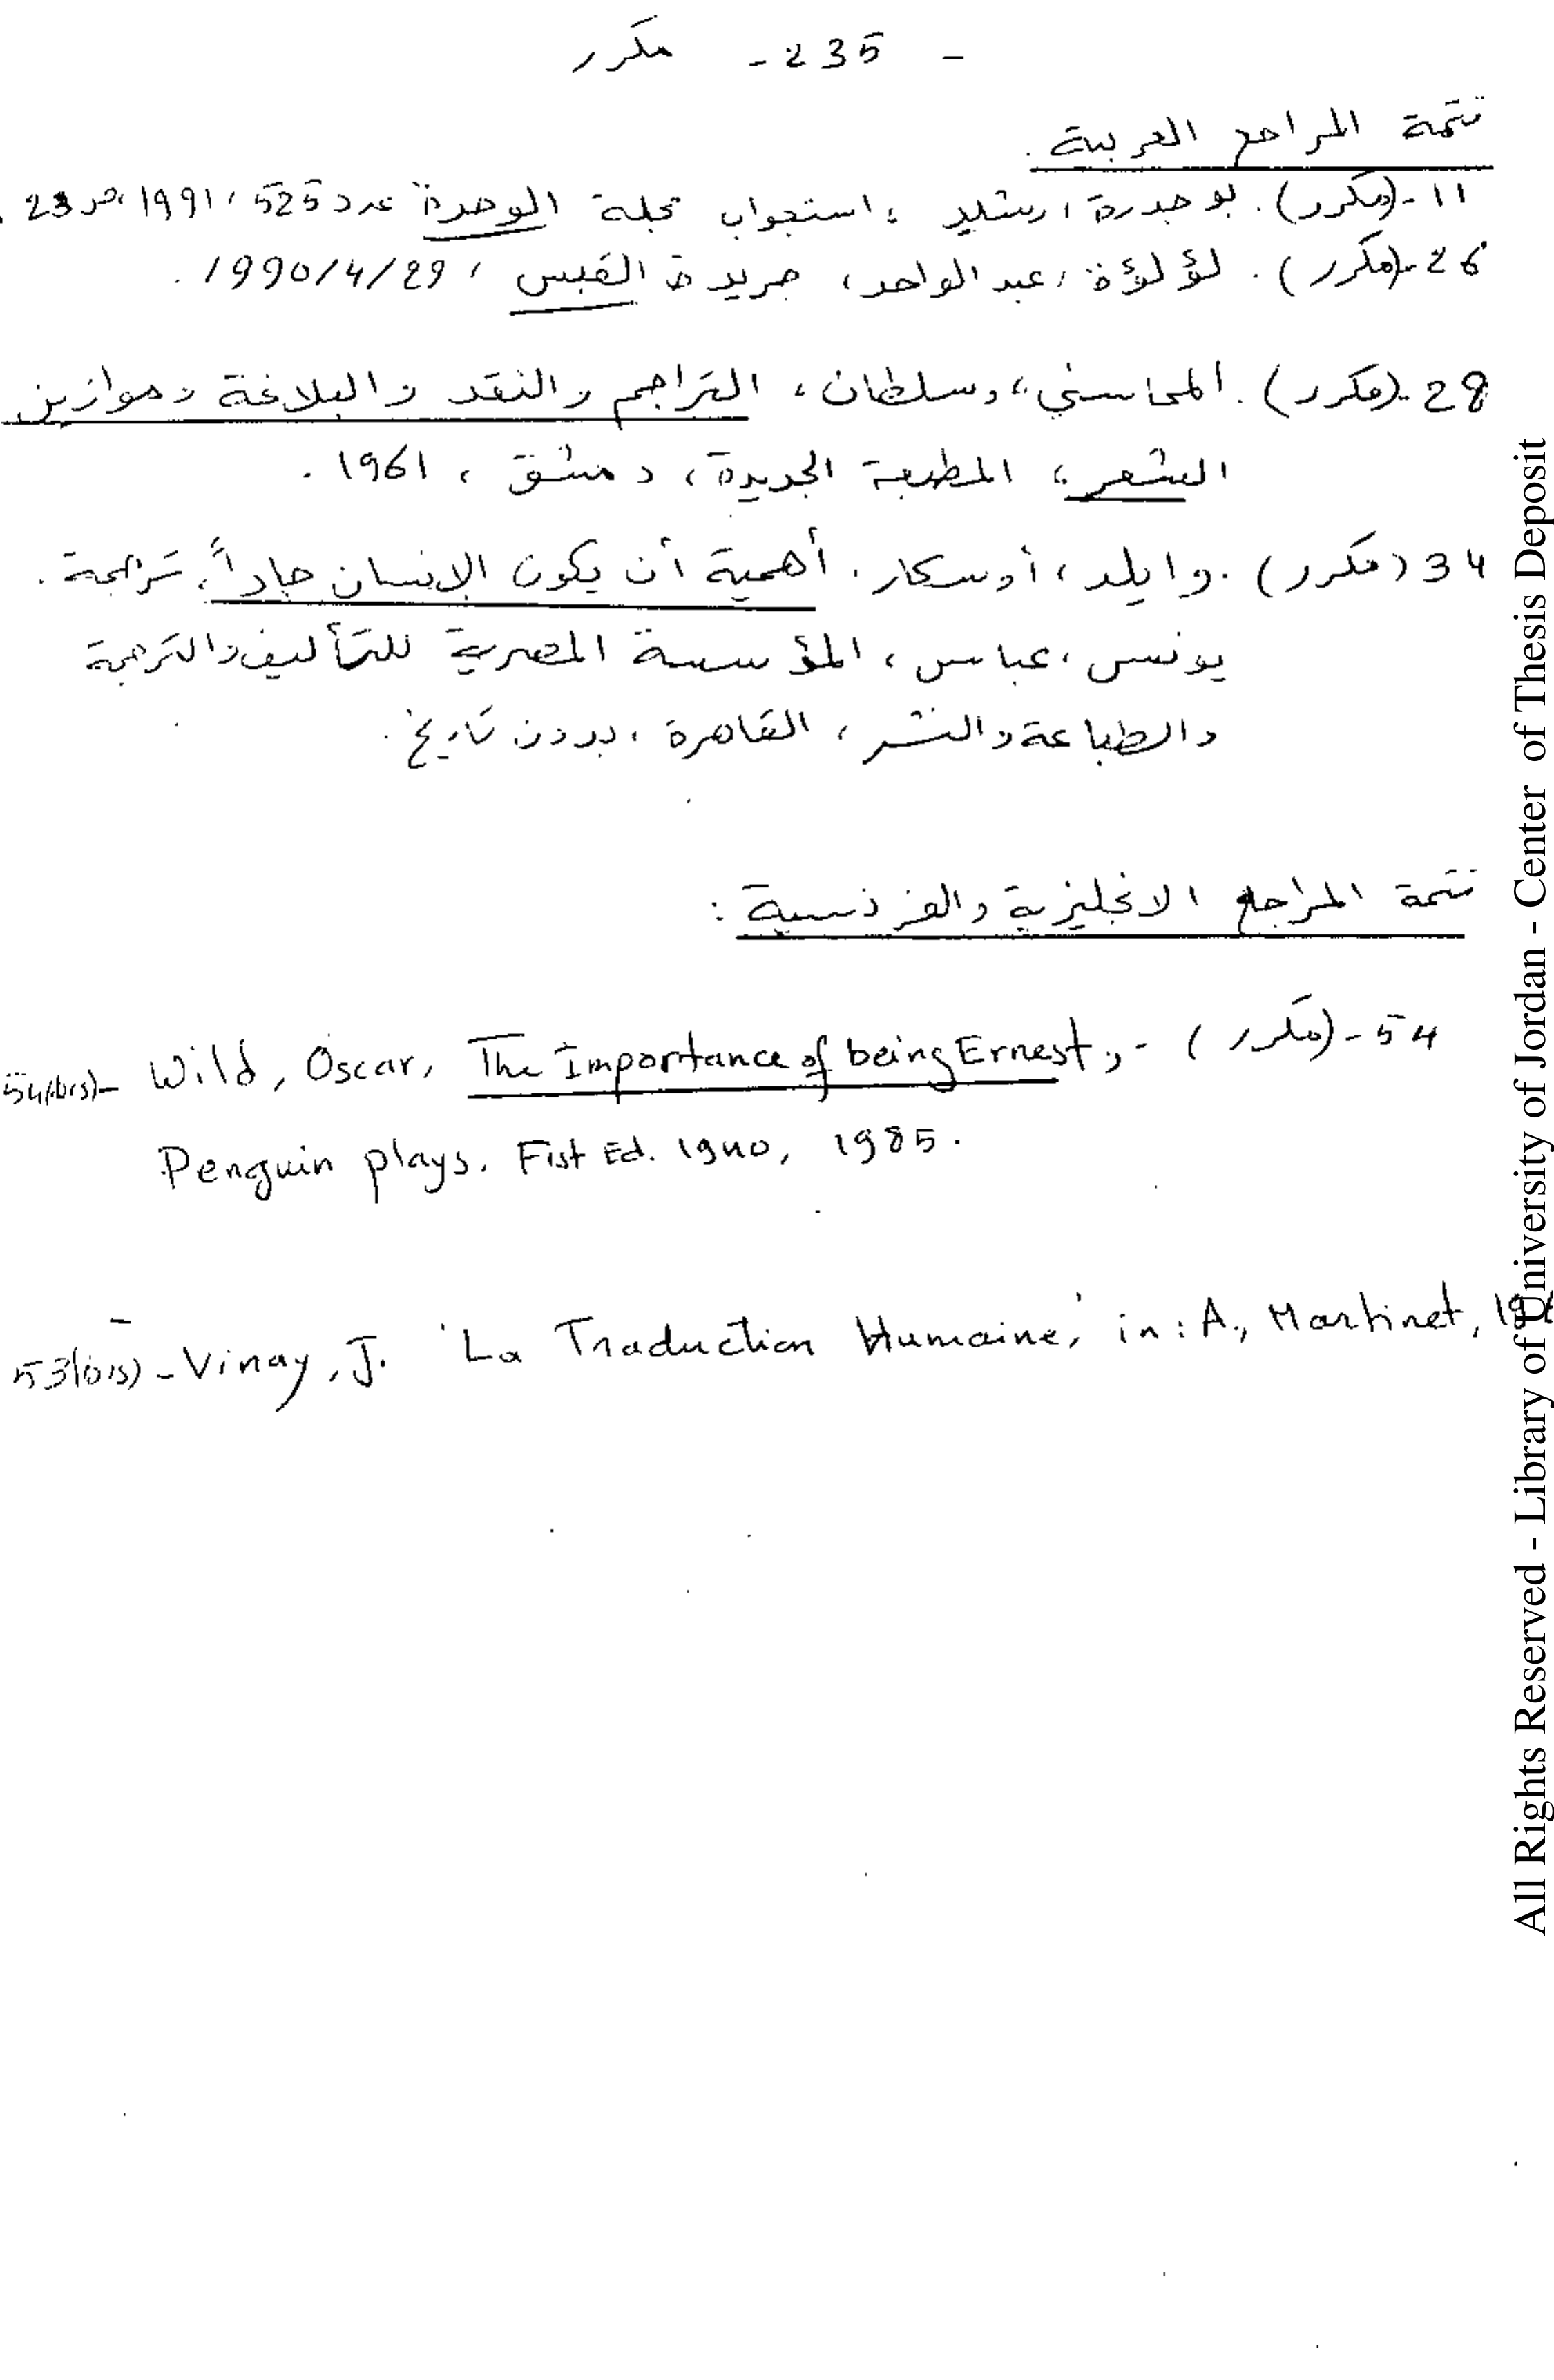 - 235 - مكرر
تتمة المراجع العربية .
11-(مكرر). بوجدرة، رشيد ، استجواب مجلة الوحدة عدد 525، 1991، ص 23 .
26-(مكرر). لؤلؤة ،عبد الواحد، جريدة القبس ، 29/4/1990 .
28-(مكرر). المحاسني، وسلطان، التراجم والنقد والبلاغة وموازين
الشعر، المطبعة الجديدة، دمشق ، 1961 .
34 (مكرر). وايلد، أوسكار . أهمية أن يكون الإنسان جاداً، ترجمة .
يونس، عباس، المؤسسة المصرية للتأليف والترجمة
والطباعة والنشر، القاهرة ،بدون تاريخ .
تتمة المراجع الانجليزية والفرنسية :
54-(مكرر)
54(bis)- Wild, Oscar, The Importance of being Ernest, -
Penguin plays. Fist Ed. 1940, 1985.
53(bis)-Vinay, J. 'La Traduction Humaine,' in: A., Martinet,
All Rights Reserved - Library of University of Jordan - Center of Thesis Deposit